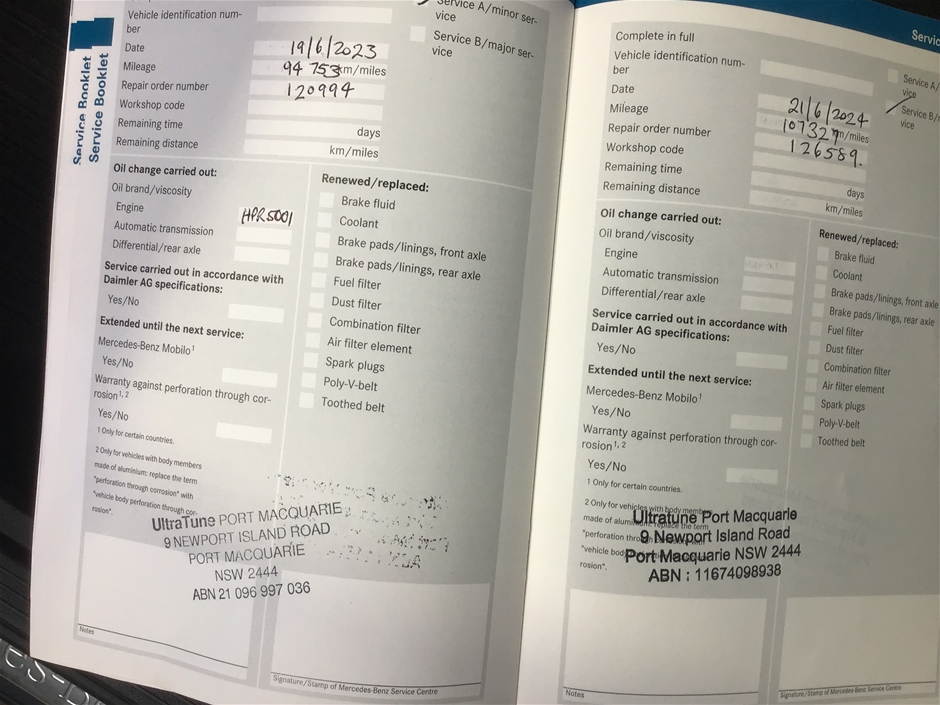 Service Booklet
Service Booklet
Vehicle identification num-
ber
Date 19/6/2023
Mileage 94 753 km/miles
Repair order number 120994
Workshop code
Remaining time days
Remaining distance km/miles
Service A/minor ser-
vice
Service B/major ser-
vice
Oil change carried out:
Oil brand/viscosity
Engine HPR5001
Automatic transmission
Differential/rear axle
Service carried out in accordance with
Daimler AG specifications:
Yes/No
Extended until the next service:
Mercedes-Benz Mobilo¹
Yes/No
Warranty against perforation through cor-
rosion¹,²
Yes/No
1 Only for certain countries.
2 Only for vehicles with body members
made of aluminium: replace the term
"perforation through corrosion" with
"vehicle body perforation through cor-
rosion".
Renewed/replaced:
Brake fluid
Coolant
Brake pads/linings, front axle
Brake pads/linings, rear axle
Fuel filter
Dust filter
Combination filter
Air filter element
Spark plugs
Poly-V-belt
Toothed belt
UltraTune PORT MACQUARIE
9 NEWPORT ISLAND ROAD
PORT MACQUARIE
NSW 2444
ABN 21 096 997 036
Notes
Signature/Stamp of Mercedes-Benz Service Centre
Servic
Complete in full
Vehicle identification num-
ber
Date 21/6/2024
Mileage 107329 km/miles
Repair order number 126589.
Workshop code
Remaining time days
Remaining distance km/miles
Service A/
vice
Service B/
vice
Oil change carried out:
Oil brand/viscosity
Engine
Automatic transmission
Differential/rear axle
Service carried out in accordance with
Daimler AG specifications:
Yes/No
Extended until the next service:
Mercedes-Benz Mobilo¹
Yes/No
Warranty against perforation through cor-
rosion¹,²
Yes/No
1 Only for certain countries.
2 Only for vehicles with body members
made of aluminium: replace the term
"perforation through
"vehicle body
rosion".
Renewed/replaced:
Brake fluid
Coolant
Brake pads/linings, front axle
Brake pads/linings, rear axle
Fuel filter
Dust filter
Combination filter
Air filter element
Spark plugs
Poly-V-belt
Toothed belt
Ultratune Port Macquarie
9 Newport Island Road
Port Macquarie NSW 2444
ABN : 11674098938
Notes
Signature/Stamp of Mercedes-Benz Service Centre